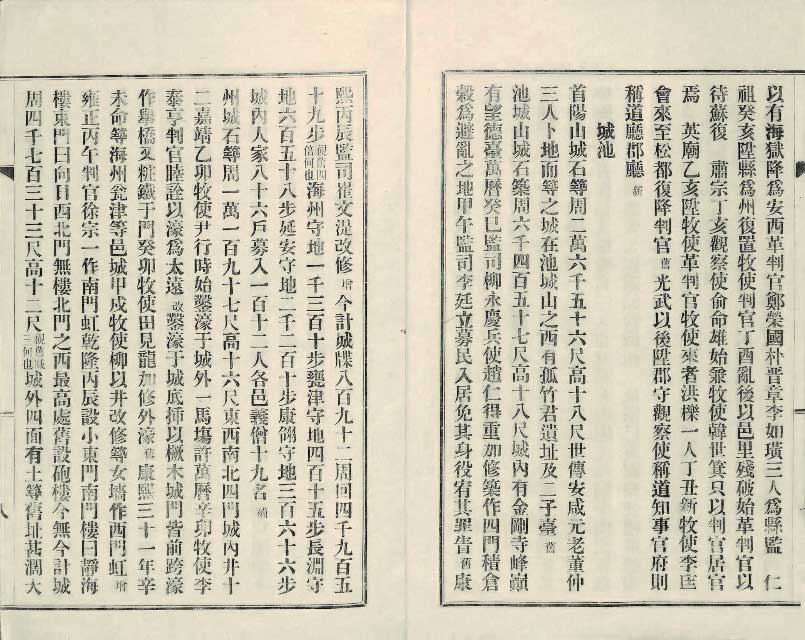 以有海獄降爲安西革判官鄭榮國朴晋章李如璜三人爲縣監　仁
祖癸亥陞縣爲州復置牧使判官丁酉亂後以邑里殘破始革判官以
待蘇復　肅宗丁亥觀察使俞命雄始兼牧使韓世箕只以判官居官
焉　英廟乙亥陞牧使革判官牧使來者洪櫟一人丁丑新牧使李
會來至松都復降判官 舊 光武以後陞郡守觀察使稱道知事官府則
稱道廳郡廳 新
城池
首陽山城石築周二萬六千五十六尺高十八尺世傳安咸元老董仲
三人卜地而築之城在池城山之西有孤竹君遺址及二子臺 舊
池城山城石築周六千四百五十七尺高十八尺城內有金剛寺峰巔
有望德臺萬曆癸巳監司柳永慶兵使趙仁得重加修築作四門積倉
穀爲避亂之地甲午監司李廷立募民入居免其身役宥其罪眚 舊 康
熙丙辰監司崔文湜改修 增 今計城牒八百九十二周回四千九百五
十九步 視舊四倍何也 海州守地一千三百十步甕津守地四百十五步長淵守
地六百五十八步延安守地二千二百十步康翎守地三百六十六步
城內人家八十六戶募入一百十二人各邑義僧十九名 補
州城石築周一萬一百九十七尺高十六尺東西南北四門城內井十
二嘉靖乙卯牧使尹行時始鑿濠于城外一馬塲許萬曆辛卯牧使李
泰亨判官睦詮以濠爲太遠 改 鑿濠于城底揷以橛木城門皆前跨濠
作舉橋又粧鐵于門癸卯牧使田見龍加修外濠 舊 康熙三十一年辛
未命築海州瓮津等邑城甲戌牧使柳以井改修築女墻作西門虹 增
雍正丙午判官徐宗一作南門虹乾隆丙辰設小東門南門樓曰靜海
樓東門曰向日西北門無樓北門之西最高處舊設砲樓今無今計城
周四千七百三十三尺高十二尺 視舊減三何也 城外四面有土築舊址甚濶大
八